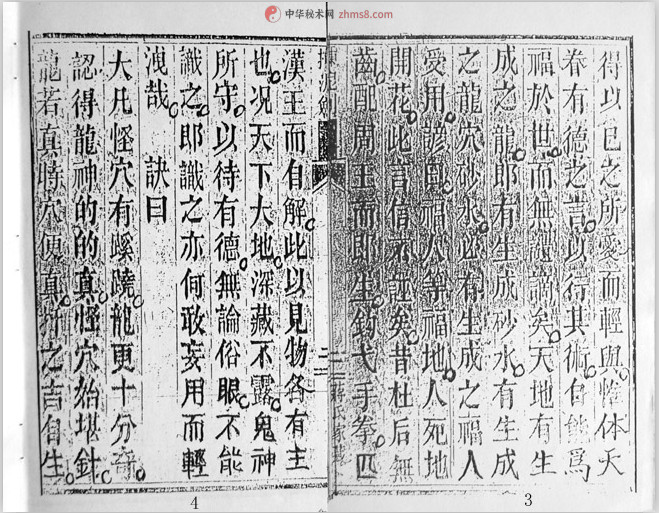 中华秘术网 zhms8.com
得以已之所愛而輕與惟体天
眷有德之言以行其術自能爲
福於世而無譴謫矣天地有生
成之龍即有生成砂水有生成
之龍穴砂水必有生成之福人
受用諺曰福人等福地人死地
開花此言信不誣矣昔杜后無
齒配周王而即生鈎弋手拳匹
漢王而自解此以見物各有主
也况天下大地深藏不露鬼神
所守以待有德無論俗眼不能
識之即識之亦何敢妄用而輕
洩哉 訣曰
大凡怪穴有蹊蹺龍更十分奇
認得龍神的的真怪穴始堪針
龍若真時穴便真扦之吉自生
3
4